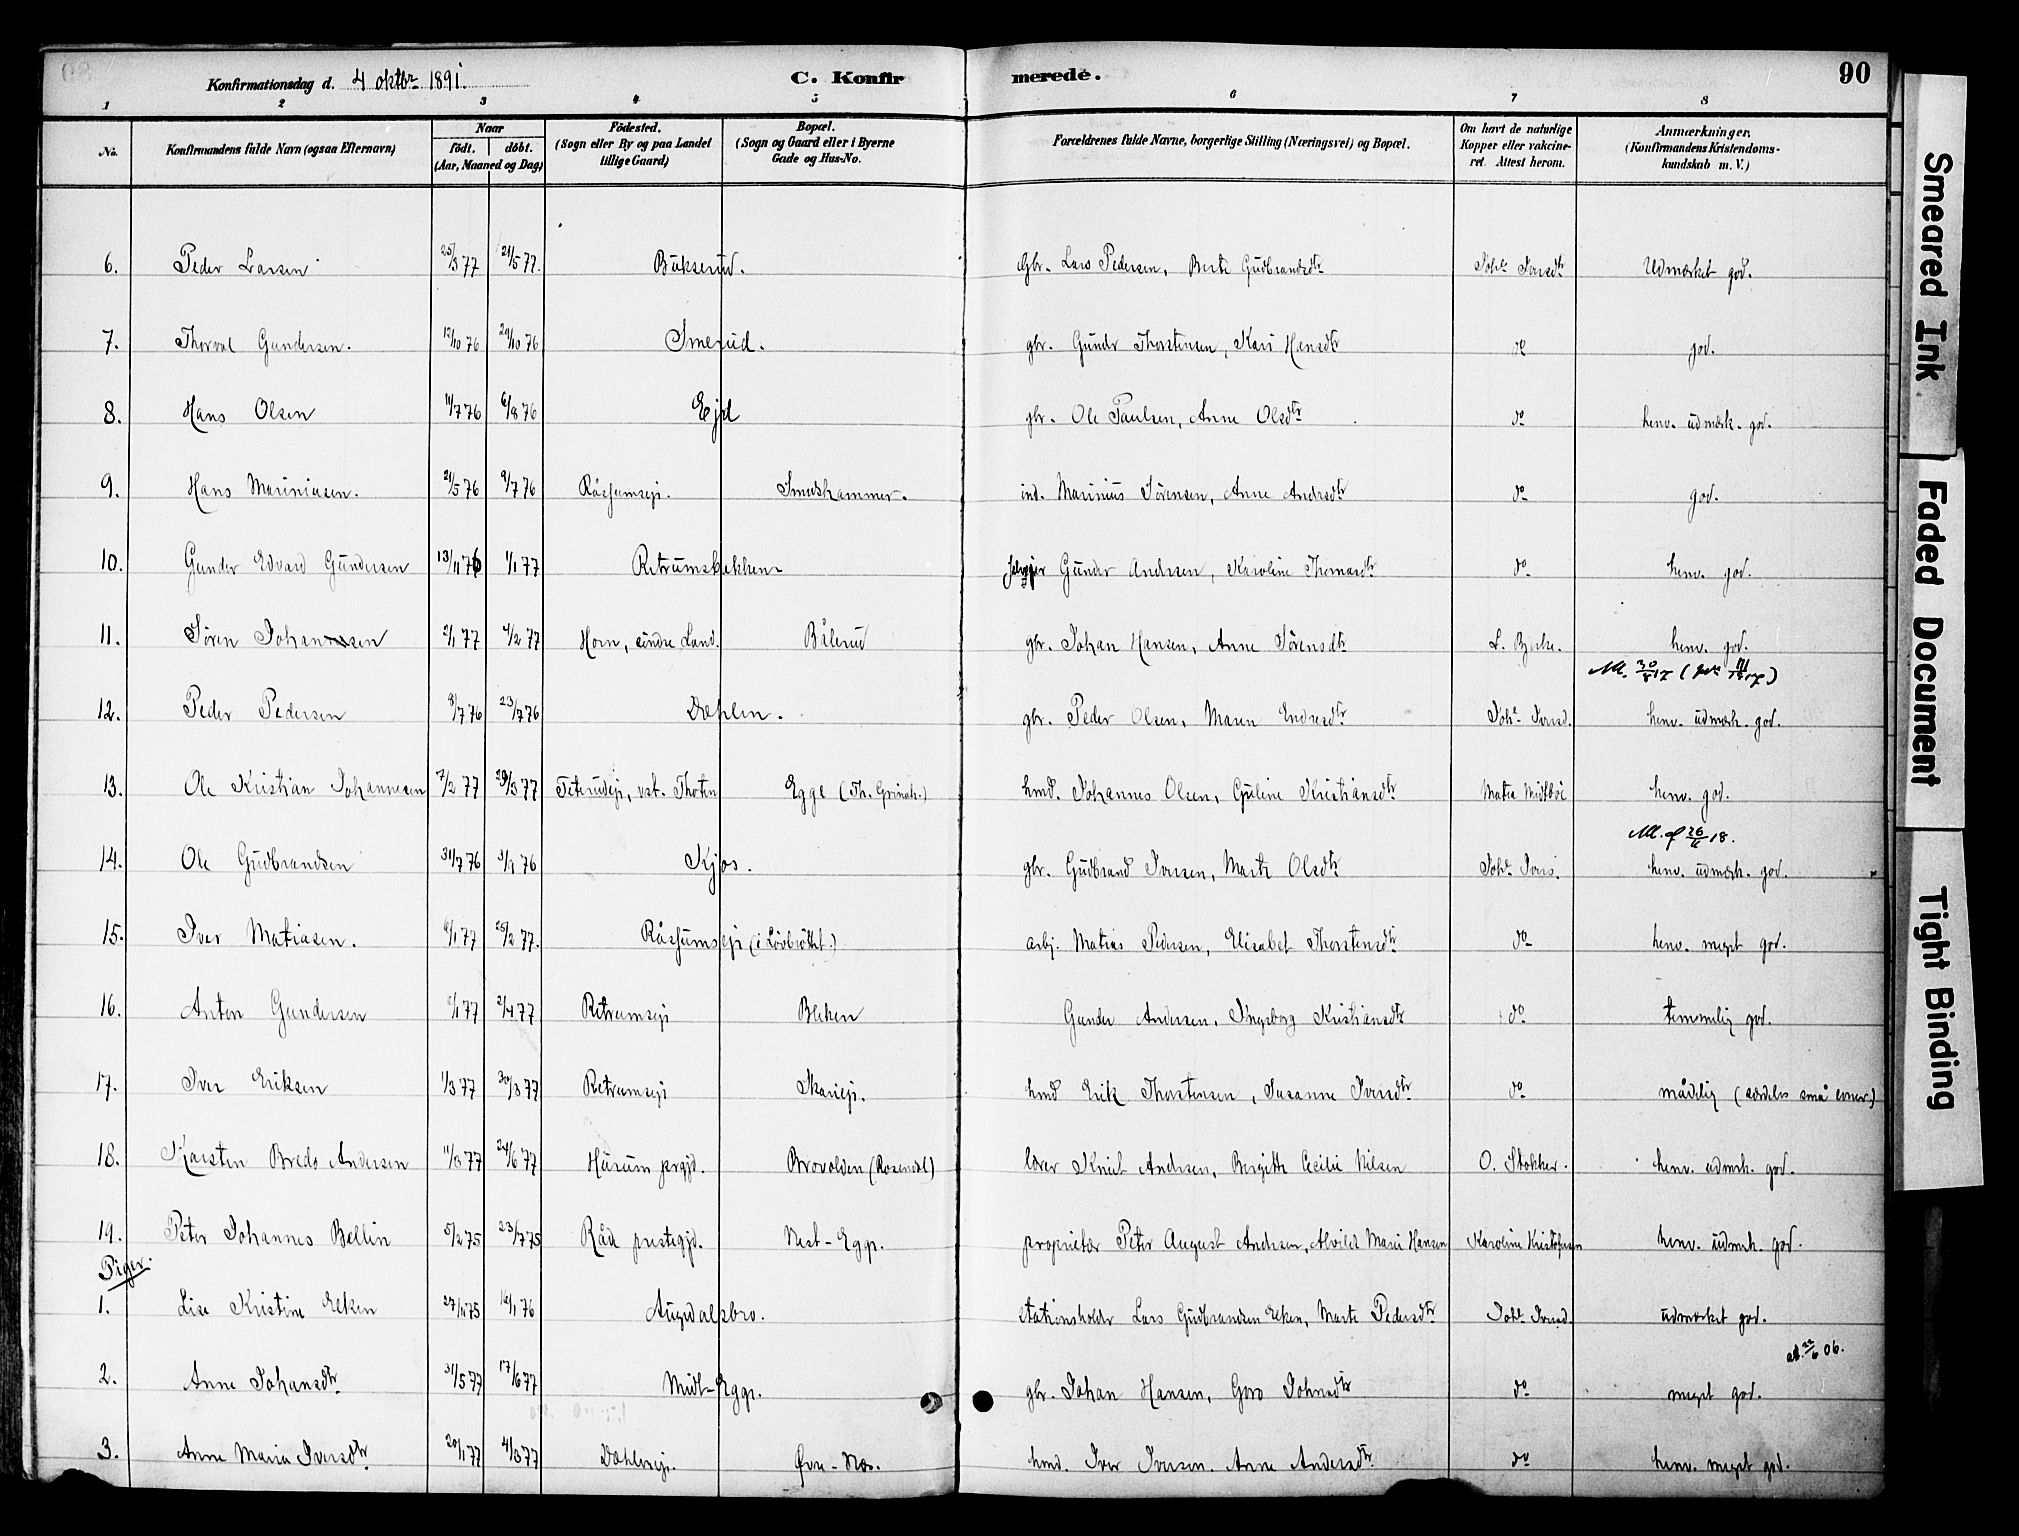 Konfirmationsdag d. 4 oktbr 1891. C. Konfirmerede. 90
1 2 3 4 5 6 7 8
No. Konfirmandens fulde Navn (ogsaa Efternavn) Naar födt. döbt. (Aar, Maaned og Dag) Födested. (Sogn eller By og paa Landet tillige Gaard) Bopæl. (Sogn og Gaard eller i Byerne Gade og Hus-No. Forældrenes fulde Navne, borgerlige Stilling (Næringsvei) og Bopæl. Om havt de naturlige Kopper eller vakcineret. Attest herom. Anmærkninger, (Konfirmandens Kristendomskundskab m. V.)
6. Peder Larsen 25/3 77 21/5 77. Bukserud. Gbr. Lars Pedersen, Berte Gudbrandsdtr Johs Iversdtr Udmærket god.
7. Thorval Gundersen. 12/10 76 29/10 76 Smerud. gbr. Gunder Thorstensen, Kari Hansdtr do god.
8. Hans Olsen 11/7 76 6/8 76 Ejd gbr. Ole Paulsen, Anne Olsdtr do henv. udmærk. god.
9. Hans Mariniusen. 21/5 76 9/7 76 Råssumsejr. Smedshammer. ind. Marinius Sörensen, Anne Andrsdtr do god.
10. Gunder Edvard Gundersen 13/11 76 1/1 77 Retrumsbakken Gunder Andersen, Karoline Thomasdtr do henv. god.
11. Sören Johansen 2/1 77 4/2 77 Horn, söndre Land. Bålerud gbr. Johan Hansen, Anne Sörensdtr L. Bjerke. henv. god.
12. Peder Pedersen 8/7 76 23/7 76 Dæhlen. gbr. Peder Olsen, Maren Endresdtr Johs Iversd. henv. udmærk. god.
13. Ole Kristian Johannesen 7/2 77 29/3 77 Teterudejr, vst. Thoten Egge (Th. Grinak.) hmd. Johannes Olsen, Guline Kristiansdtr Matea Midtböe henv. god.
14. Ole Gudbrandsen 31/7 76 Kjos. gbr. Gudbrand Iversen, Marte Olsdtr Johs Ivers. henv. udmærk. god.
15. Iver Matiasen. 6/1 77 25/2 77. Råssumsejr arbj. Matias Pedersen, Elisabet Thorstensdtr do henv. meget god.
16. Anton Gundersen 2/4 77 Retrumsejr Bleken Gunder Andersen, Ingeborg Kristiansdtr do temmelig god.
17. Iver Eriksen 1/3 77 30/3 77 Retrumsejr Skariejr. hmd Erik Thorstensen, Susanne Iversdtr do mådelig (særdeles små evner)
18. Karsten Bredo Andersen 24/6 77 Hurum prgjd. Brovolden (Rosendal) lærer Knut Andersen, Bergitte Cecilie Nilsen O. Stokker. henv. udmrk. god.
19. Peter Johannes Bellin 5/2 75 23/7 75 Råde prestegjd. Vest-Egge. proprietær Peter August Andersen, Alvilde Marie Hansen Karoline Kristofersen henv. udmrk. god.
Piger.
1. Lise Kristine Elken 16/1 76 Augedalsbro. stationsholdr Lars Gudbrandsen Elken, Marte Pedersdtr Johs Iversd. udmærket god.
2. Anne Johansdtr 31/5 77 17/6 77 Midt-Egge. gbr. Johan Hansen, Goro Johnsdtr do meget god.
3. Anne Maria Iversdtr 20/1 77 4/3 77 Dæhlensejr. Övre-Næs. hmd. Iver Iversen. Anne Andersdtr. do henv. meget god.
Smeared Ink
Faded Document
Tight Binding